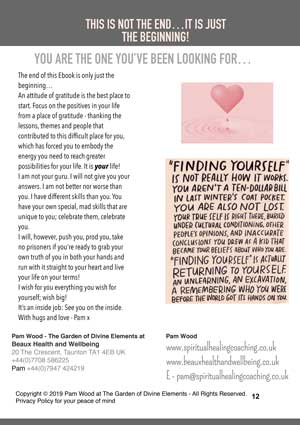 THIS IS NOT THE END...IT IS JUST
THE BEGINNING!
YOU ARE THE ONE YOU'VE BEEN LOOKING FOR...
The end of this Ebook is only just the
beginning...
An attitude of gratitude is the best place to
start. Focus on the positives in your life
from a place of gratitude - thanking the
lessons, themes and people that
contributed to this difficult place for you,
which has forced you to embody the
energy you need to reach greater
possibilities for your life. It is your life!
I am not your guru. I will not give you your
answers. I am not better nor worse than
you. I have different skills than you. You
have your own special, mad skills that are
unique to you; celebrate them, celebrate
you.
I will, however, push you, prod you, take
no prisoners if you're ready to grab your
own truth of you in both your hands and
run with it straight to your heart and live
your life on your terms!
I wish for you everything you wish for
yourself; wish big!
It's an inside job: See you on the inside.
With hugs and love - Pam x
"FINDING YOURSELF"
IS NOT REALLY HOW IT WORKS.
YOU AREN'T A TEN-DOLLAR BILL
IN LAST WINTER'S COAT POCKET.
YOU ARE ALSO NOT LOST.
YOUR TRUE SELF IS RIGHT THERE, BURIED
UNDER CULTURAL CONDITIONING, OTHER
PEOPLE'S OPINIONS, AND INACCURATE
CONCLUSIONS YOU DREW AS A KID THAT
BECAME YOUR BELIEFS ABOUT WHO YOU ARE.
"FINDING YOURSELF" IS ACTUALLY
RETURNING TO YOURSELF.
AN UNLEARNING, AN EXCAVATION,
A REMEMBERING WHO YOU WERE
BEFORE THE WORLD GOT ITS HANDS ON YOU.
Pam Wood - The Garden of Divine Elements at
Beaux Health and Wellbeing
20 The Crescent, Taunton TA1 4EB UK
+44(0)7708 586225
Pam +44(0)7947 424219
Pam Wood
www.spiritualhealingcoaching.co.uk
www.beauxhealthandwellbeing.co.uk
E - pam@spiritualhealingcoaching.co.uk
Copyright © 2019 Pam Wood at The Garden of Divine Elements - All Rights Reserved.
Privacy Policy for your peace of mind
12